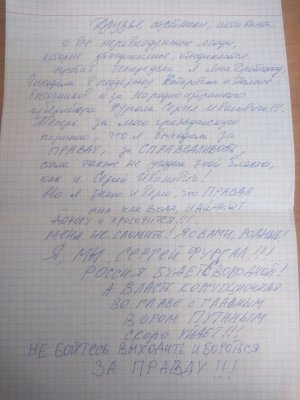 Друзья, соратники, активисты
и все неравнодушные люди,
которые объединились, объединимся
против
выходила в поддержку Хабаровска и
и за народно избранного
губернатора Фургала Сергея Ивановича!!!
Теперь за мою гражданскую
позицию, что я выходила за
ПРАВДУ, за СПРАВЕДЛИВОСТЬ,
я также не угодна этой власти,
как и Сергей Иванович!
Но я знаю и верю, что ПРАВДА
она как ВОДА НАЙДЁТ
ДОРОГУ И ПРОСОЧИТСЯ!!!
МЕНЯ НЕ СЛОМИТЬ! Я С ВАМИ, РОДНЫЕ!
Я МЫ СЕРГЕЙ ФУРГАЛ!!!
РОССИЯ БУДЕТ СВОБОДНОЙ!
А ВЛАСТЬ КОРУПЦИОННАЯ
ВО ГЛАВЕ С ГЛАВНЫМ
ВОРОМ ПУТИНЫМ
СКОРО УЙДЕТ!!!
НЕ БОЙТЕСЬ ВЫХОДИТЬ И БОРОТЬСЯ
ЗА ПРАВДУ!!!